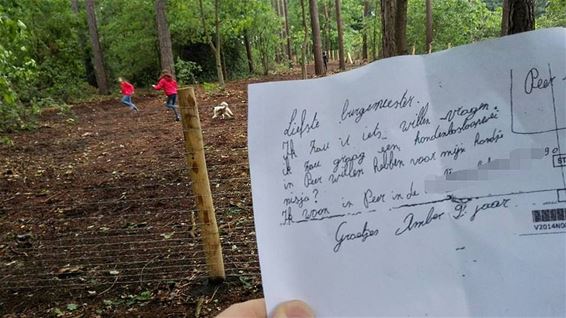 Liefste burgemeester.
Ik zou u iets willen vragen.
ik zou graag een hondenlosloopwei
in Peer willen hebben voor mijn hondje
nisja?
Ik woon in Peer in de
Groetjes Amber 9 jaar
Peer
V2014N0